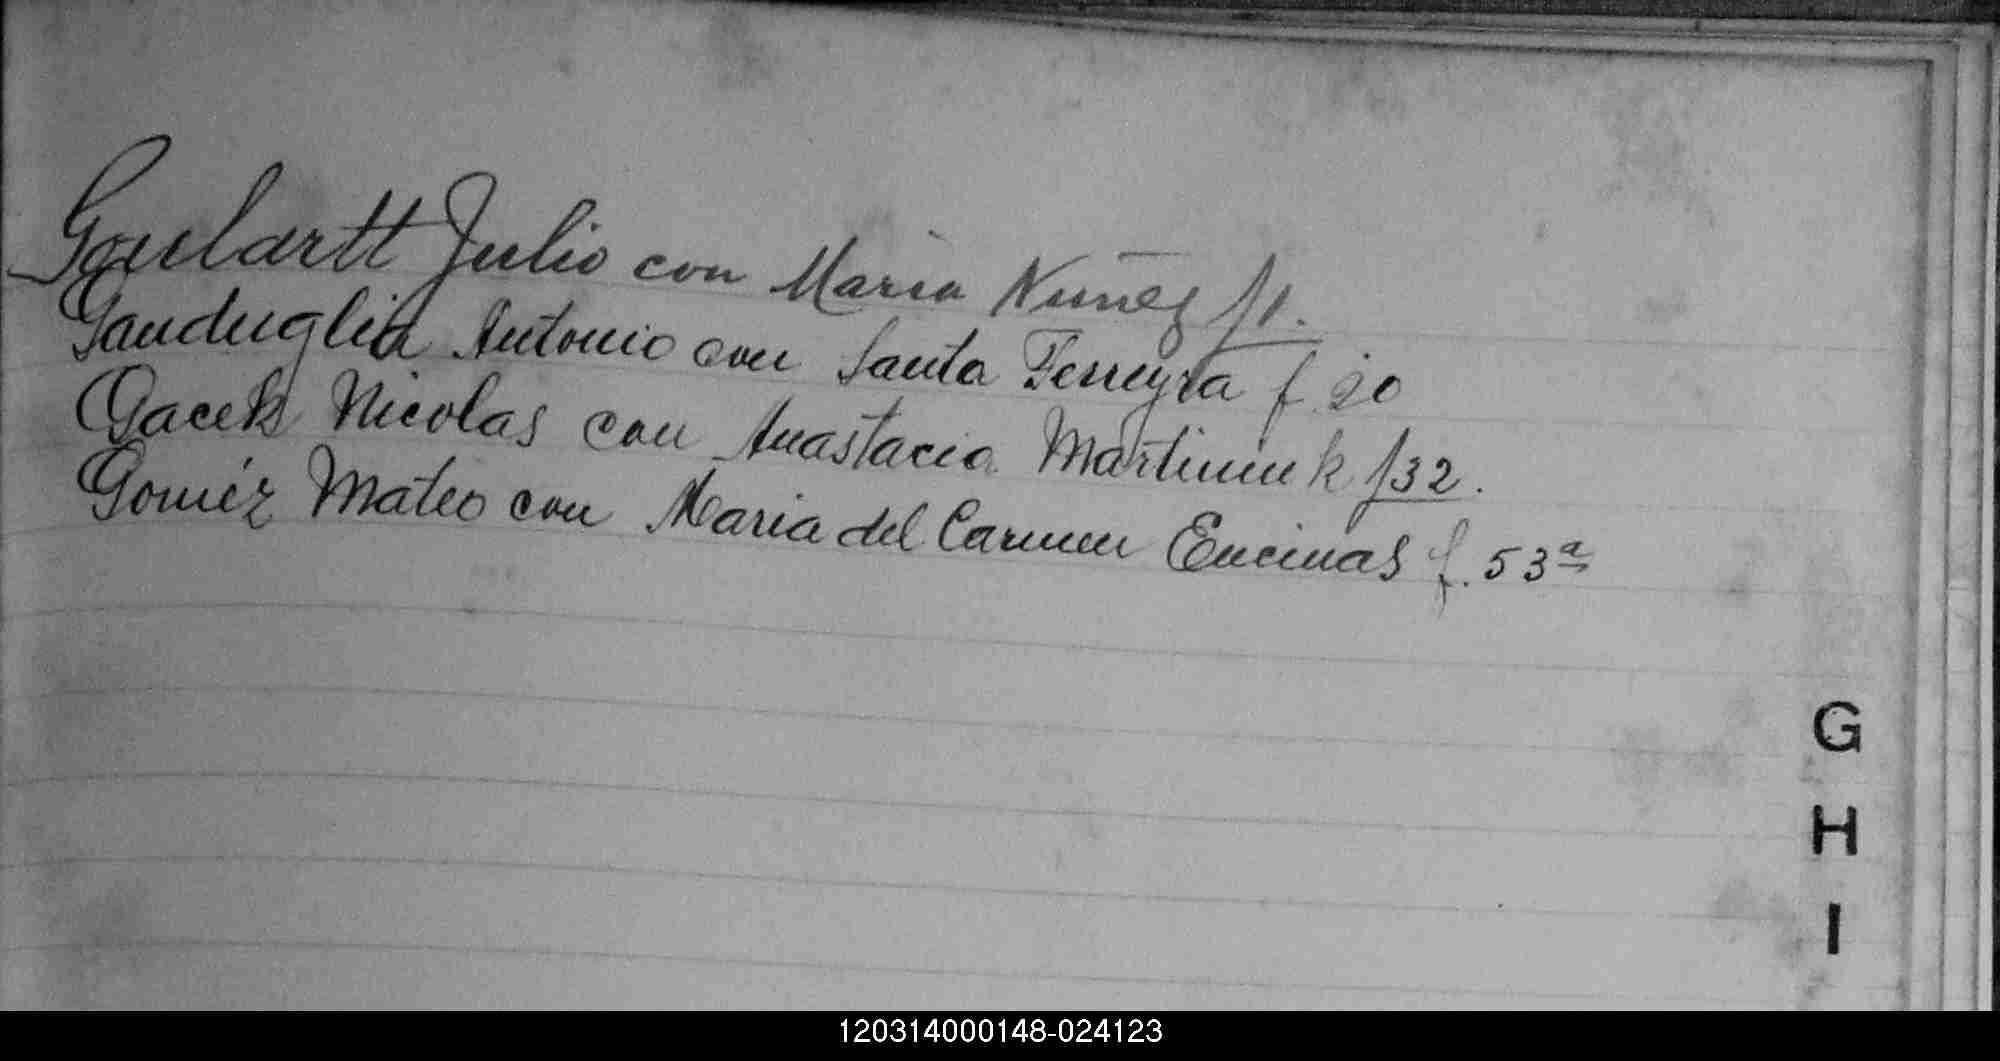 Goulartt Julio con Maria Nuñez f1.
Gauduglia Antonio con Santa Ferreyra f. 20
Gacek Nicolas con Anastacia Martiniuk f32.
Goméz Mateo con Maria del Carmen Encinas f. 53ª
G
H
I
120314000148-024123